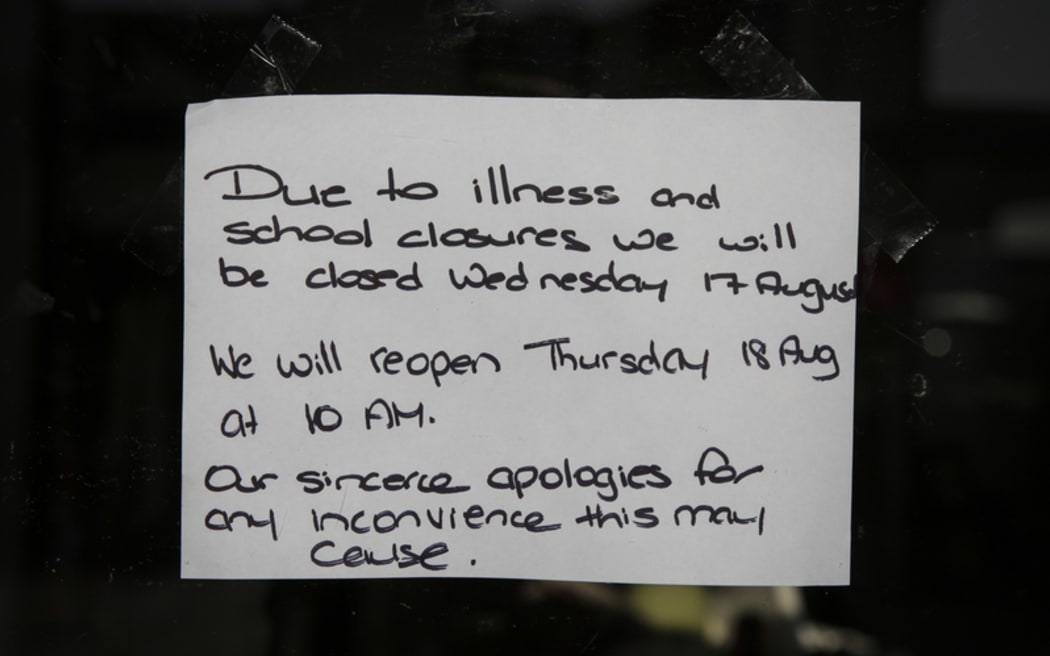 Due to illness and
school closures we will
be closed Wednesday 17 August
We will reopen Thursday 18 Aug
at 10 AM.
Our sincerce apologies for
any inconvience this may
cause.